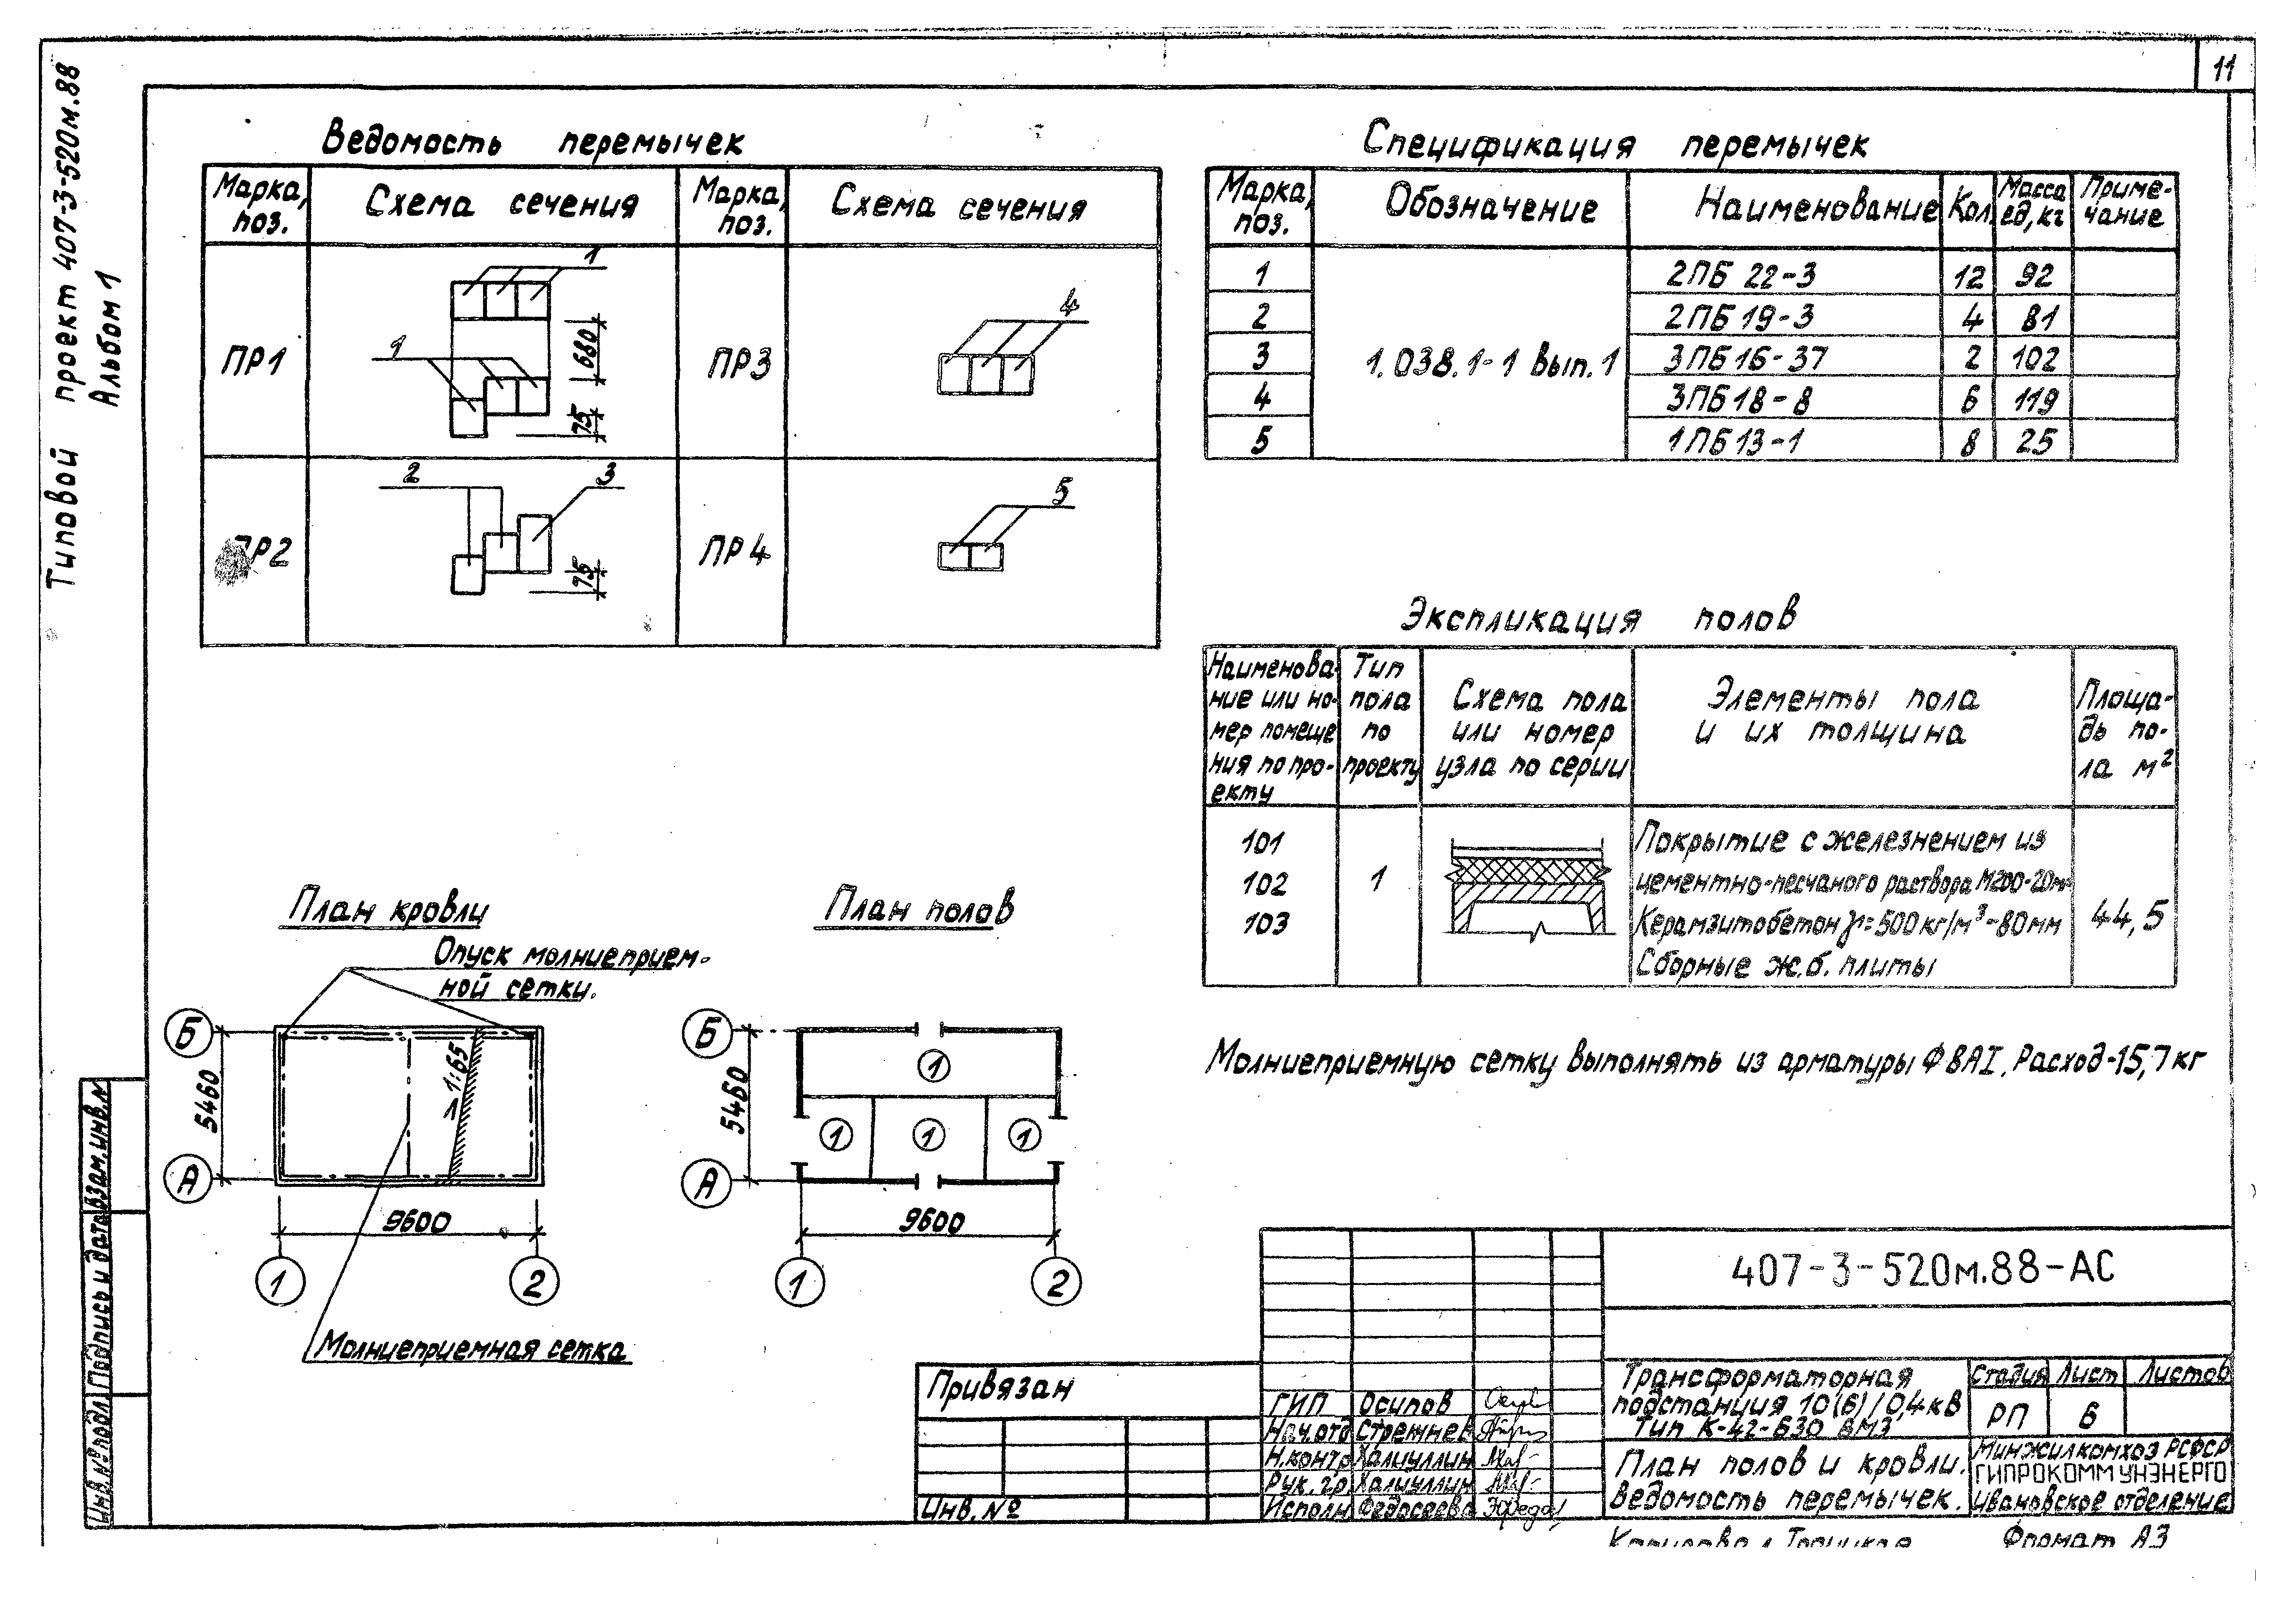 11
Типовой проект 407-3-520м.88
Альбом 1
Ведомость перемычек
Марка, поз.
Схема сечения
Марка, поз.
Схема сечения
ПР1
1
1
680
75
ПР3
4
ПР2
2
3
75
ПР4
5
Спецификация перемычек
Марка, поз.
Обозначение
Наименование
Кол.
Масса ед, кг
Приме-
чание
1
2ПБ 22-3
12
92
2
2ПБ 19-3
4
81
3
1.038.1-1 Вып.1
3ПБ 16-37
2
102
4
3ПБ 18-8
6
119
5
1ПБ 13-1
8
25
Экспликация полов
Наименова-
ние или но-
мер помеще
ния по про-
екту
Тип
пола
по
проекту
Схема пола
или номер
узла по серии
Элементы пола
и их толщина
Площа-
дь по-
ла м²
101
102
103
1
Покрытие с железнением из
цементно-песчаного раствора М200-20мм
Керамзитобетон γ=500кг/м³-80мм
Сборные ж.б. плиты
44,5
Молниеприемную сетку выполнять из арматуры Ф8АI. Расход-15,7кг
План кровли
Опуск молниеприем-
ной сетки.
Б
А
5460
1:65
9600
1
2
Молниеприемная сетка
План полов
Б
А
5460
1
1
1
1
9600
1
2
Взам.инв.№
Подпись и дата
Инв.№ подл.
Привязан
Инв.№
ГИП Осипов
Нач.отд Стрежнев
Н.контр Халиуллин
Рук.гр. Халиуллин
Исполн Федосеева
407-3-520м.88-АС
Трансформаторная
подстанция 10(6)/0,4кв
Тип К-42-630 ВМЗ
Стадия
Лист
Листов
РП
6
План полов и кровли.
Ведомость перемычек.
Минжилкомхоз РСФСР
ГИПРОКОММУНЭНЕРГО
Ивановское отделение
Формат А3